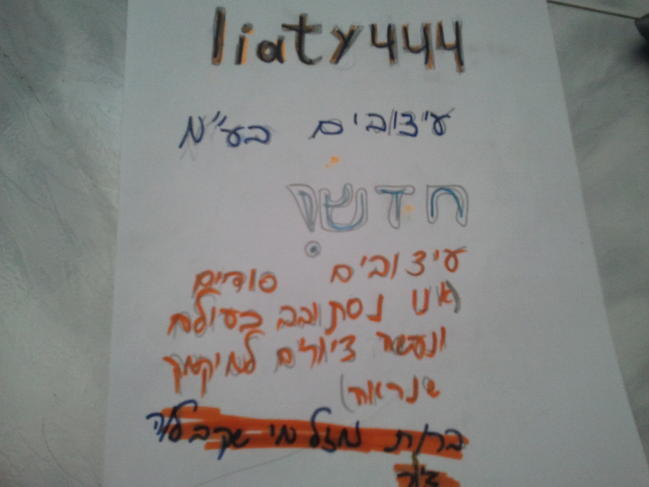 liaty444
עיצובים בע"מ
חדש!
עיצובים סודיים
(אנו נסתובב בעולם
ונעשה ציורים למיקומך
שנראה)
ברת מזל מי שקבלה
ציור